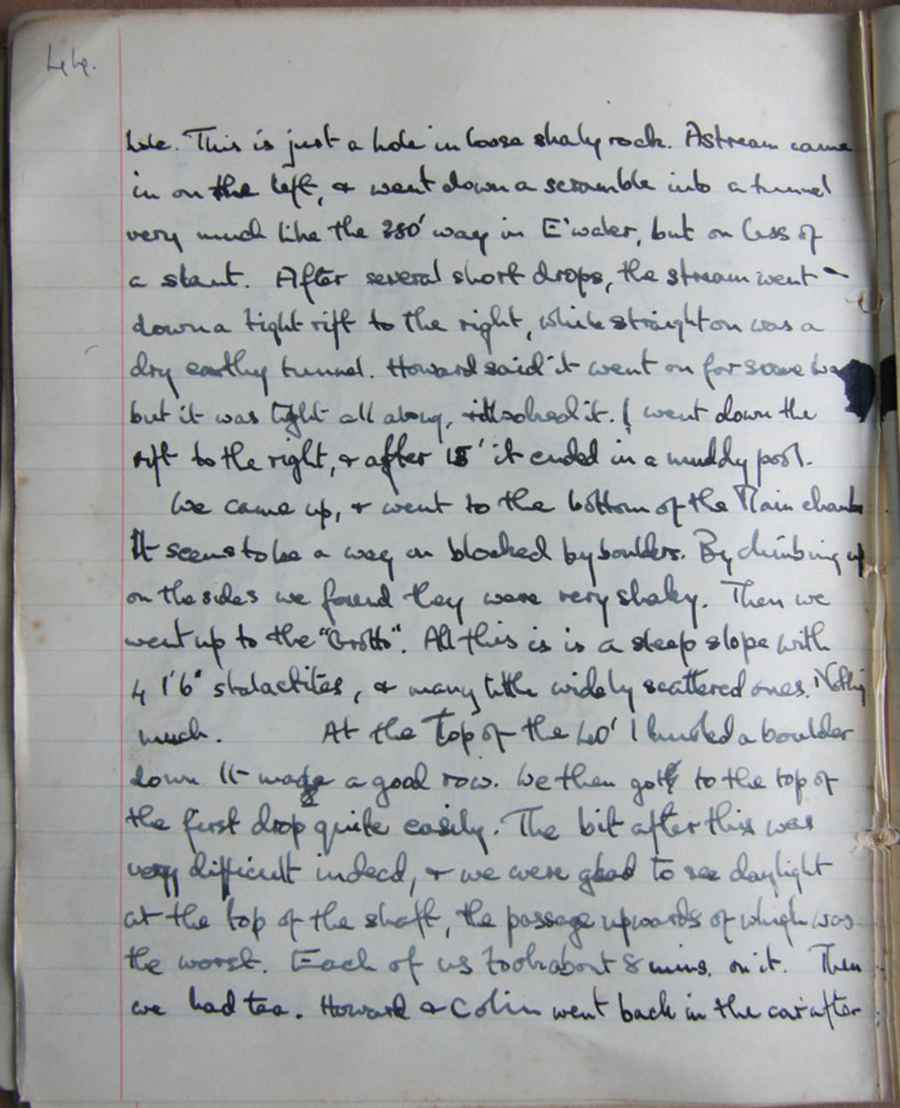 44.
hole. This is just a hole in loose shaly rock. A stream came
in on the left, & went down a scramble into a tunnel
very much like the 280' way in E'water, but on less of
a slant. After several short drops, the stream went
down a tight rift to the right, while straight on was a
dry earthy tunnel. Howard said it went on for some
but it was tight all along, it. I went down the
rift to the right, & after 15' it ended in a muddy pool.
We came up, & went to the bottom of the Main chamb
It seems to be a way on blocked by boulders. By climbing up
on the sides we found they were very shaky. Then we
went up to the "Grotto". All this is is a steep slope with
4 1'6" stalactites, & many little widely scattered ones. Nothing
much. At the Top of the 40' I hurled a boulder
down It made a good row. We then got to the top of
the first drop quite easily. The bit after this was
very difficult indeed, & we were glad to see daylight
at the top of the shaft, the passage upwards of which was
the worst. Each of us took about 8 mins. on it. Then
we had tea. Howard & Colin went back in the car after